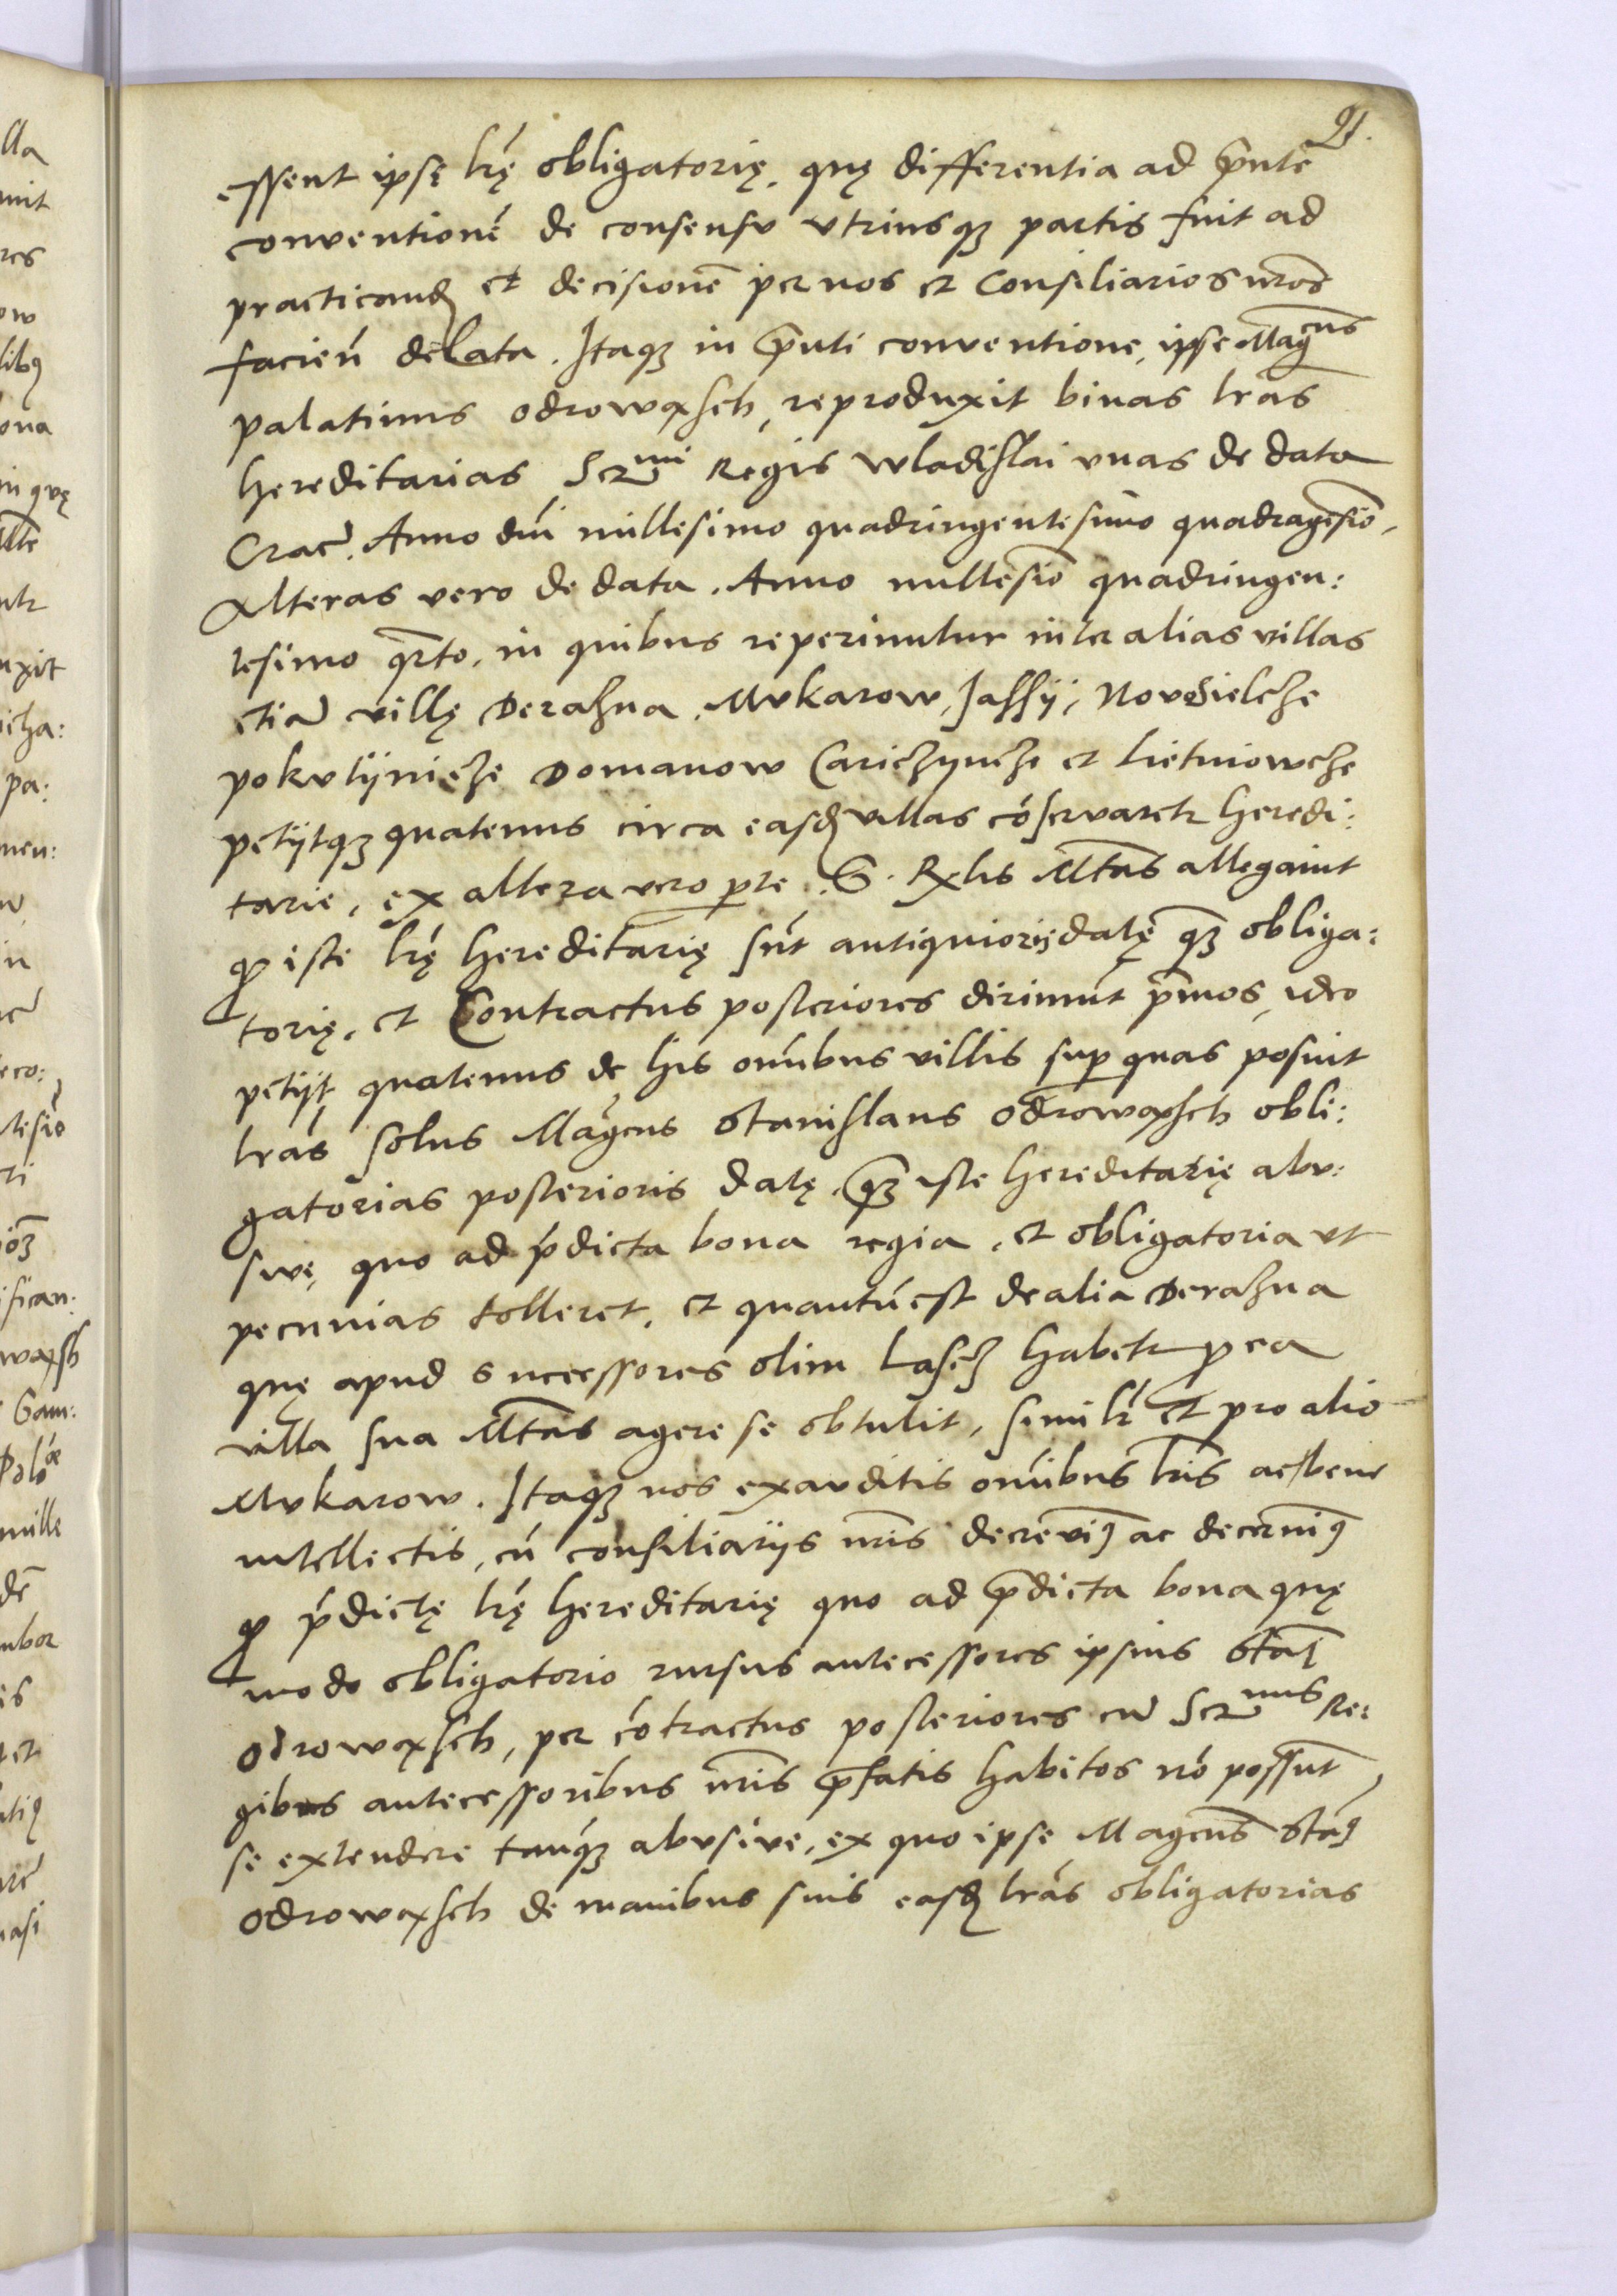 91.
essent ipsę lr̃ę obligatorię, quę differentia ad p̃nte᷈
conventione᷈ de consensu vtriusq₃ partis fuit ad
practicand et decisione᷈ per nos et Consiliarios nr̃os
facien᷈ delata. Itaq₃ in p̃nti conventione, ipse Mag^cus
palatinus odrowąsch, reproduxit binas lr̃as
hereditarias Ser^mi Regis Wladislai vnas de data
Crac᷈. Anno dn᷈i millesimo quadringentesimo quadragesi᷈o,
Alteras vero de data. Anno millesi᷈o quadringen:
tesimo qr̃to, in quibus reperiuntur inter alias villas
etia᷈ villę Derazna, Mukarow, Jassÿ, Novosielcze
pokutÿnicze Domanow Cariczyncze et Lietniowcze
petÿtq₃ quatenus circa easd villas co᷈servaretr heredi:
tarie, ex altera vero p̱te. S. Rꝫlis M᷈tas allegauit
ꝙ iste lr̃ę hereditarię su᷈t antiquioris datę q̃₃ obliga:
torię, et Contractus posteriores dirimu᷈t p̃mos, ideo
petÿt quatenus de his om᷈ibus villis sup̱ quas posuit
lr̃as solus Mag᷈cus Stanislaus odrowąsch obli:
gatorias posterioris datę, q̃₃ iste hereditarię abu:
sivę, quo ad p̃dicta bona regia, et obligatoria vt
pecunias tolleret, et quantu᷈ est de alia Derazna
quę apud successores olim Lascz habetr p̱ ea
villa sua M᷈tas agere se obtulit, similr̃ et pro alio
Mukarow. Itaq₃ nos exauditis om᷈ibus lr̃is ac bene
intellectis, cu᷈ consiliarÿs nr̃is decrevimꝰ ac decernimꝰ
ꝙ p̃dictę lr̃ę hereditarię quo ad p̃dicta bona quę
modo obligatorio rursus antecessores ipsius Sta᷈i
odrowąsch, per co᷈tractus posteriores cu᷈ Ser^mis Re:
gibus antecessoribus nr̃is p̃fatis habitos no᷈ possu᷈t
se extendere tanq̃₃ abusive, ex quo ipse Magcus᷈ Sta᷈ꝰ
odrowąsch de manibus suis easd lr̃as obligatorias